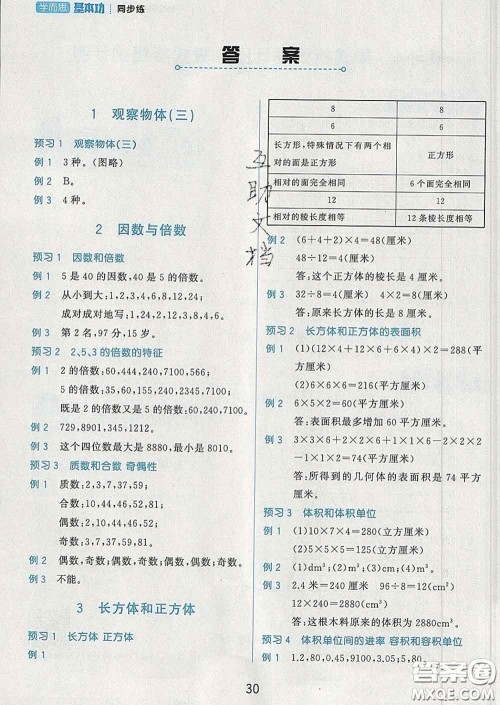 学而思 基本功 同步练
答案
1 观察物体(三)
预习1 观察物体(三)
例1 3种。(图略)
例2 B。
例3 4种。
2 因数与倍数
预习1 因数和倍数
例1 5是40的因数,40是5的倍数。
例2 从小到大:1,2,3,4,6,8,12,24;
成对成对地写:1,24,2,12,3,8,4,6。
例3 第2名,97分,15岁。
预习2 2,5,3的倍数的特征
例1 2的倍数:60,444,240,360,7100;
5的倍数:35,60,155,2345,7100;
既是2的倍数又是5的倍数:60,240,7100。
例2 729,8901,345,3210。
例3 这个四位数最大是8880,最小是8010。
预习3 质数和合数 奇偶性
例1 质数:2,3,7,37,59;
合数:10,44,46,52,81;
偶数:2,10,44,46,52;
奇数:3,7,37,59,81。
例2 偶数,奇数;偶数,奇数;偶数,偶数;奇数;
例3 不能。
3 长方体和正方体
预习1 长方体 正方体
例1
8 8
6 6
长方形,特殊情况下有两个相对的面是正方形 正方形
相对的面完全相同 6个面完全相同
12 12
相对的棱长度相等 12条棱长度相等
例2 (6+4+2)×4=48(厘米)
48÷12=4(厘米)
答:这个正方体的棱长是4厘米。
例3 32÷8=4(厘米)
答:原来长方体的宽是4厘米。
预习2 长方体和正方体的表面积
例1 (1)(12×4+12×6+4×6)×2=288(平方厘米)
(2)6×6×6=216(平方厘米)
例2 6×5×2=60(平方厘米)
答:表面积最多增加60平方厘米。
例3 3×3×6+2×2×6+1×1×6-2×2×2-1×1×2=74(平方厘米)
答:所得到的几何体的表面积是74平方厘米。
预习3 体积和体积单位
例1 (1)10×7×4=280(立方厘米)
例2 (1)dm³;(2)dm³;(3)m³;(4)cm³。
例3 2.4米=240厘米 96÷8=12(cm²)
12×240=2880(cm³)
答:这根木料原来的体积为2880cm³。
预习4 体积单位间的进率 容积和容积单位
例1 1.2,80,0.45,9100,3.05,5,80。
互助文档
30
答案圈
MXQE.COM